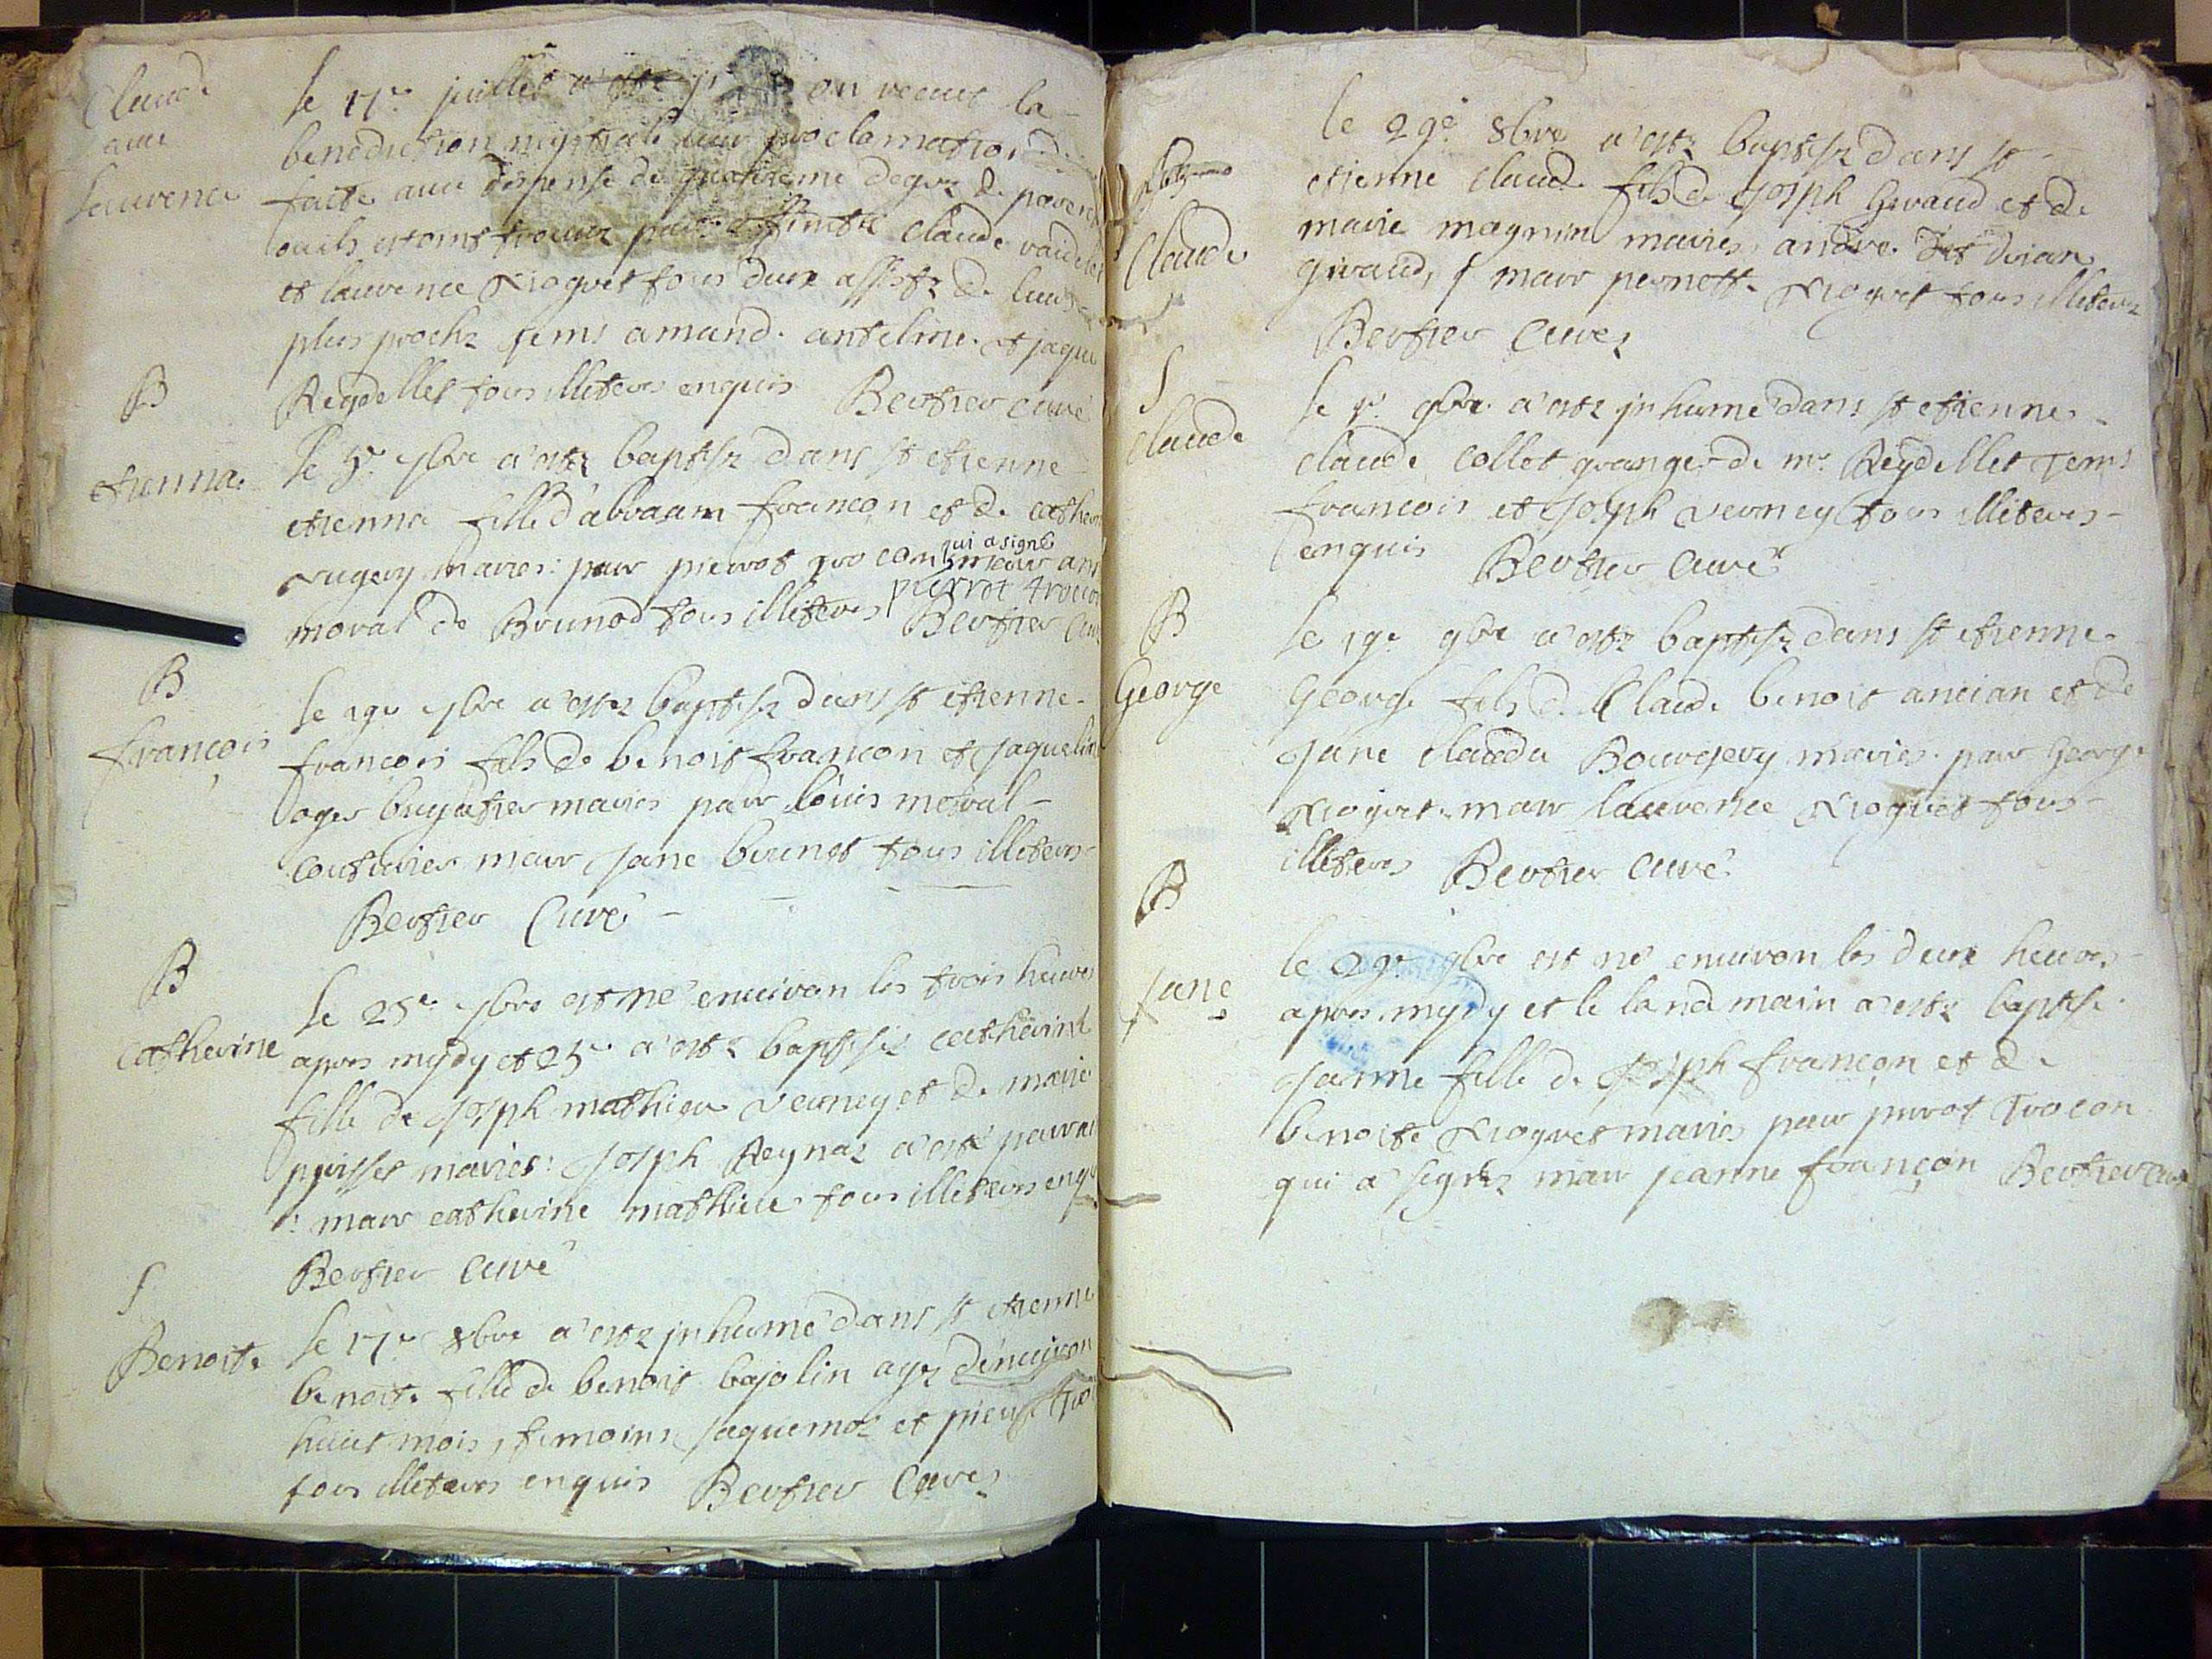 Claude
avec
Laurence
le 17e juillet a esté on receut la
benediction nuptiale leur proclamation
faite avec dispense de quatrieme degrez de parent
ou ils estoint claude raidelet
et laurence niogret tous deux assistz de leurs
plus proche tems amand. antelme et jaque
Reydellet tous illiteres enquis Bertier curé
B
etienna
le 5e 7bre a este baptisz dans st etienne
etienna fille d'abraam francon et de cather
nugery maries: parr pierrot trocon qui a signé marr
pierrot trocon
moral de Brunod tous illiteres Bertier curé
B
francois
le 19e 7bre a estez baptisz dans st etienne
francois fils de benoit francon et jaqueline
oger buyatier maries parr louis moral
couturier marr jane brunet tous illiteres
Bertier Curé
B
catherine
le 25e 7bre est né environ les trois heures
apres mydy et 25e a este baptisée catherine
fille de joseph mathieu verney et de marie
puisset maries: joseph Reynaz a esté parrai
: marr catherine mathieu tous illiteres enqu
Bertier curé
S
Benoite
le 17e 8bre a este jnhumé dans st etienne
benoite fille de benoit bajolin agez d'environ
huict mois, temoins jaquemoz et pierre
tous illiteres enquis Bertier Curez
Claude
le 29e 8bre a este baptisz dans st
etienne claude fils de joseph Giraud et de
marie magnin maries, andre
giraud, marr pernette niogret tous illiterez
Bertier Curez
S
Claude
le 9bre a este jnhumé dans st etienne
claude collet granger de mr Reydellet Tems
francois et joseph verney tous illiteres
enquis Bertier Curé
B
George
le 19e 9bre a este baptisz dans st etienne
George fils de Claude benoit ancian et de
jane clauda Bourgery maries. parr George
niogret. marr laurence niogret tous
illiteres Bertier curé
B
jane
le 29e 9bre est né environ les deux heures
apres mydy et le landemain a este baptise
janne fille de joseph francon et de
benoite niogret maries parr pirrot Trocon
qui a signez marr jeanne françon Bertier curé